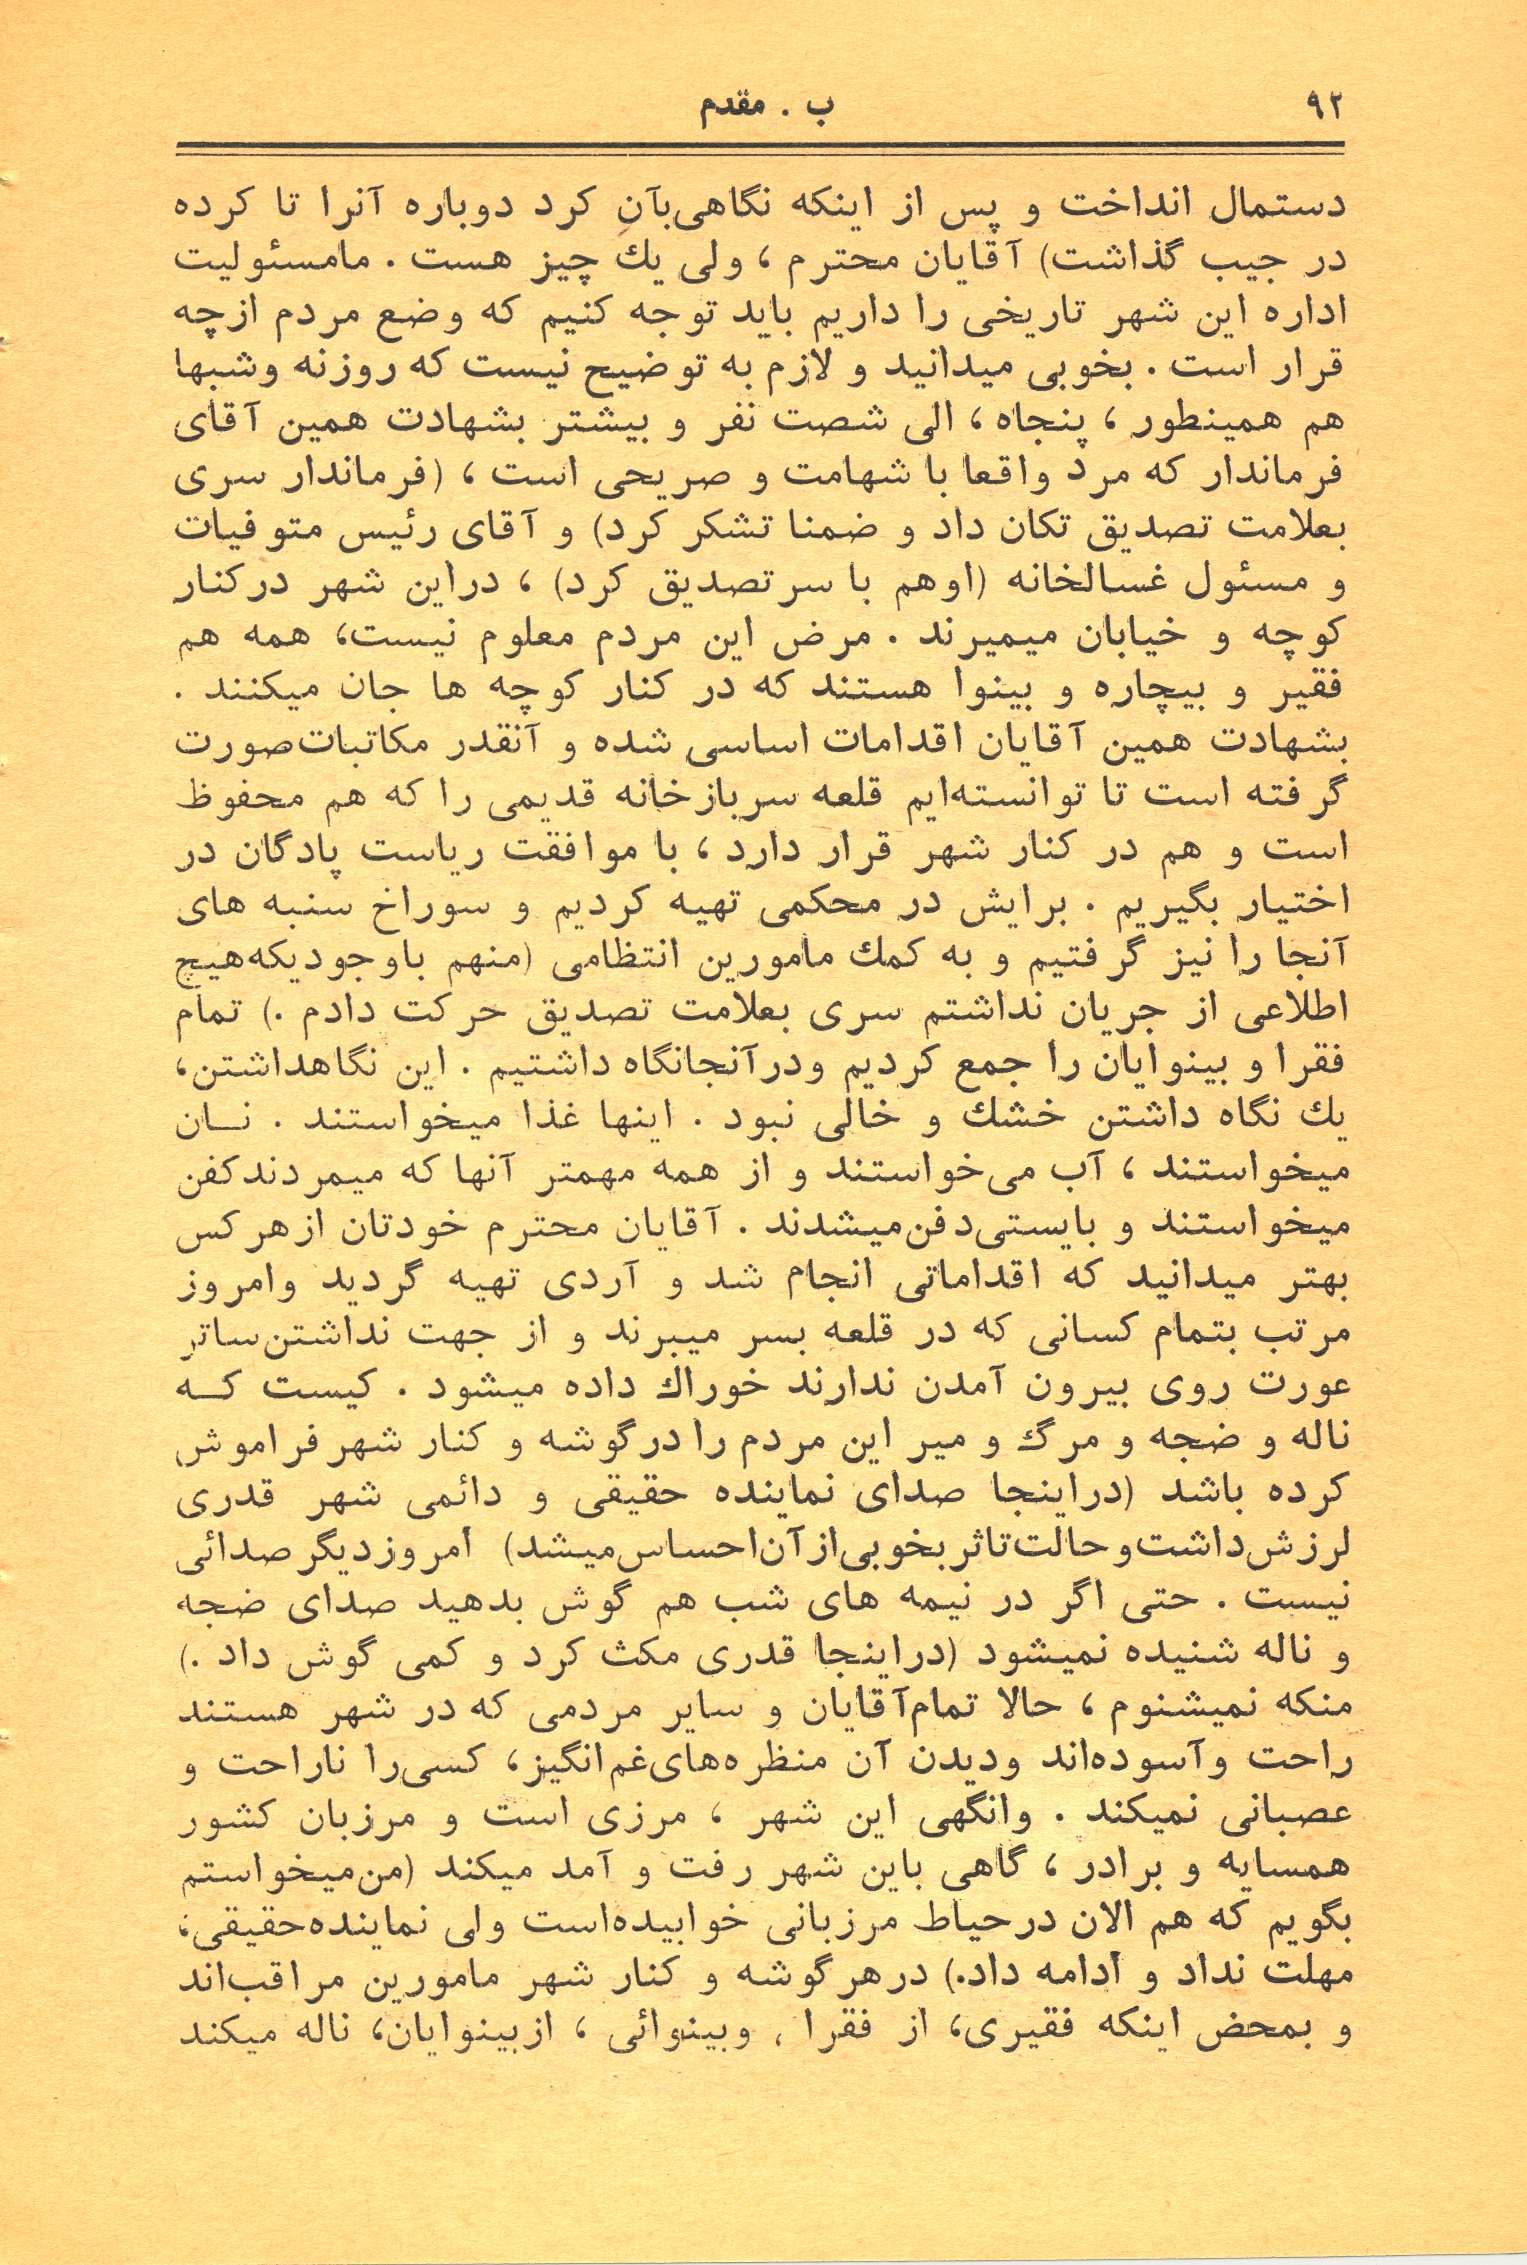 ۹۲
ب . مقدم
دستمال انداخت و پس از اینکه نگاهی‌بآن کرد دوباره آنرا تا کرده
در جیب گذاشت) آقایان محترم ، ولی یك چیز هست . مامسئولیت
اداره این شهر تاریخی را داریم باید توجه کنیم که وضع مردم ازچه
قرار است . بخوبی میدانید و لازم به توضیح نیست که روزنه وشبها
هم همینطور ، پنجاه ، الی شصت نفر و بیشتر بشهادت همین آقای
فرماندار که مرد واقعا با شهامت و صریحی است ، (فرماندار سری
بعلامت تصدیق تکان داد و ضمنا تشکر کرد) و آقای رئیس متوفیات
و مسئول غسالخانه (اوهم با سرتصدیق کرد) ، دراین شهر درکنار
کوچه و خیابان میمیرند . مرض این مردم معلوم نیست، همه هم
فقیر و بیچاره و بینوا هستند که در کنار کوچه ها جان میکنند .
بشهادت همین آقایان اقدامات اساسی شده و آنقدر مکاتبات‌صورت
گرفته است تا توانسته‌ایم قلعه سربازخانه قدیمی را که هم محفوظ
است و هم در کنار شهر قرار دارد ، با موافقت ریاست پادگان در
اختیار بگیریم . برایش در محکمی تهیه کردیم و سوراخ سنبه های
آنجا را نیز گرفتیم و به کمك مامورین انتظامی (منهم باوجودیکه‌هیچ
اطلاعی از جریان نداشتم سری بعلامت تصدیق حرکت دادم .) تمام
فقرا و بینوایان را جمع کردیم ودرآنجانگاه داشتیم . این نگاهداشتن،
یك نگاه داشتن خشك و خالی نبود . اینها غذا میخواستند . نــان
میخواستند ، آب می‌خواستند و از همه مهمتر آنها که میمردندکفن
میخواستند و بایستی‌دفن‌میشدند . آقایان محترم خودتان ازهرکس
بهتر میدانید که اقداماتی انجام شد و آردی تهیه گردید وامروز
مرتب بتمام کسانی که در قلعه بسر میبرند و از جهت نداشتن‌ساتر
عورت روی بیرون آمدن ندارند خوراك داده میشود . کیست کــه
ناله و ضجه و مرگ و میر این مردم را درگوشه و کنار شهرفراموش
کرده باشد (دراینجا صدای نماینده حقیقی و دائمی شهر قدری
لرزش‌داشت‌وحالت‌تاثربخوبی‌ازآن‌احساس‌میشد) امروزدیگرصدائی
نیست . حتی اگر در نیمه های شب هم گوش بدهید صدای ضجه
و ناله شنیده نمیشود (دراینجا قدری مکث کرد و کمی گوش داد .)
منکه نمیشنوم ، حالا تمام‌آقایان و سایر مردمی که در شهر هستند
راحت وآسوده‌اند ودیدن آن منظره‌های‌غم‌انگیز، کسی‌را ناراحت و
عصبانی نمیکند . وانگهی این شهر ، مرزی است و مرزبان کشور
همسایه و برادر ، گاهی باین شهر رفت و آمد میکند (من‌میخواستم
بگویم که هم الان درحیاط مرزبانی خوابیده‌است ولی نماینده‌حقیقی،
مهلت نداد و ادامه داد.) درهرگوشه و کنار شهر مامورین مراقب‌اند
و بمحض اینکه فقیری، از فقرا ، وبینوائی ، ازبینوایان، ناله میکند